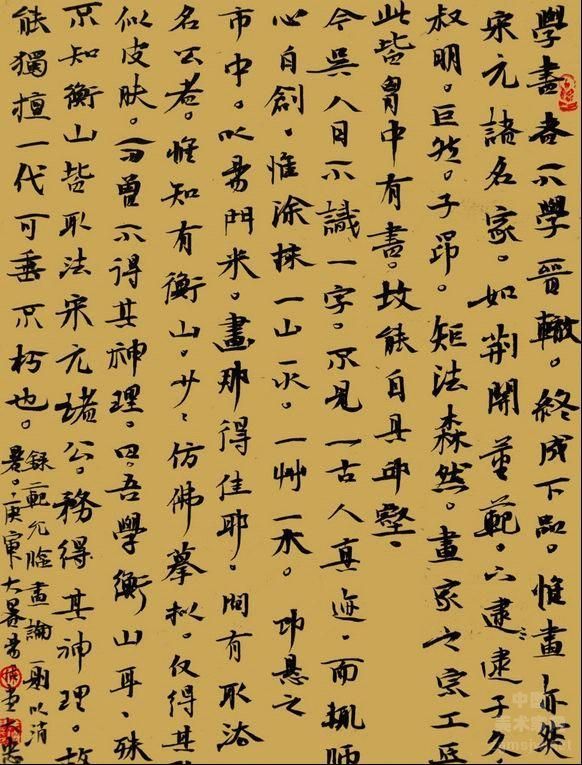 學畫者不學晉轍。終成下品。惟畫亦然
宋元諸名家。如荆關董範。下逮逮子久、
叔明。巨然。子昂。矩法森然。畫家之宗工巨
此皆胷中有書。故能自具邱壑、
今吳人目不識一字。不見一古人真迹。而輒師
心自創。惟涂抹一山一水。一艸一木。即懸之
市中。以易門米。畫那得佳耶。間有取法
名公者。惟知有衡山。少々仿佛摹擬。仅得其
似皮膚。而曾不得其神理。曰。吾學衡山耳、殊
不知衡山皆取法宋元诸公。務得其神理。故
能獨擅一代可垂不朽也。
錄範允臨畫論一則以消
暑。庚寅大暑